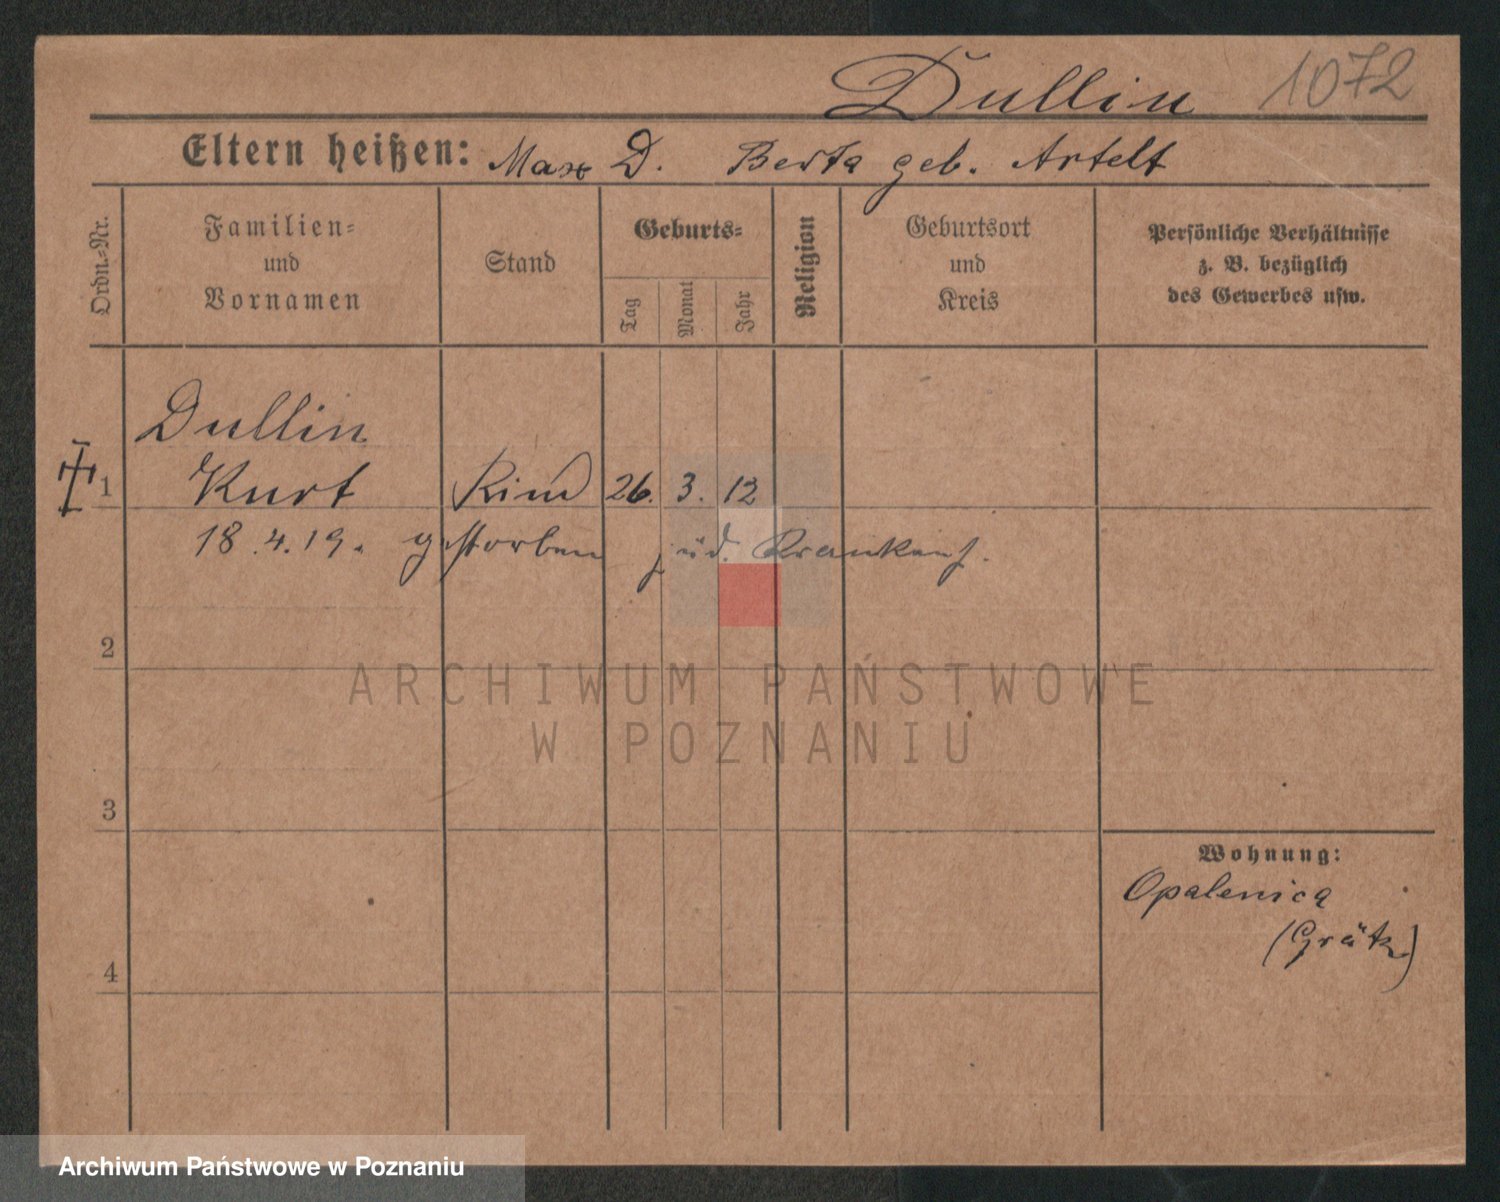 Dullin 1072
Eltern heißen: Max D. Berta geb. Artelt
Ordn.-Nr.
Familien-
und
Vornamen
Stand
Geburts-
Tag
Monat
Jahr
Religion
Geburtsort
und
Kreis
Persönliche Verhältnisse
z. B. bezüglich
des Gewerbes usw.
Dullin
1 Kurt Kind 26. 3. 12
18.4.19. gestorben jüd. Krankenh.
2
ARCHIWUM PAŃSTWOWE
W POZNANIU
3
Wohnung:
Opalenica
(Grätz)
4
Archiwum Państwowe w Poznaniu